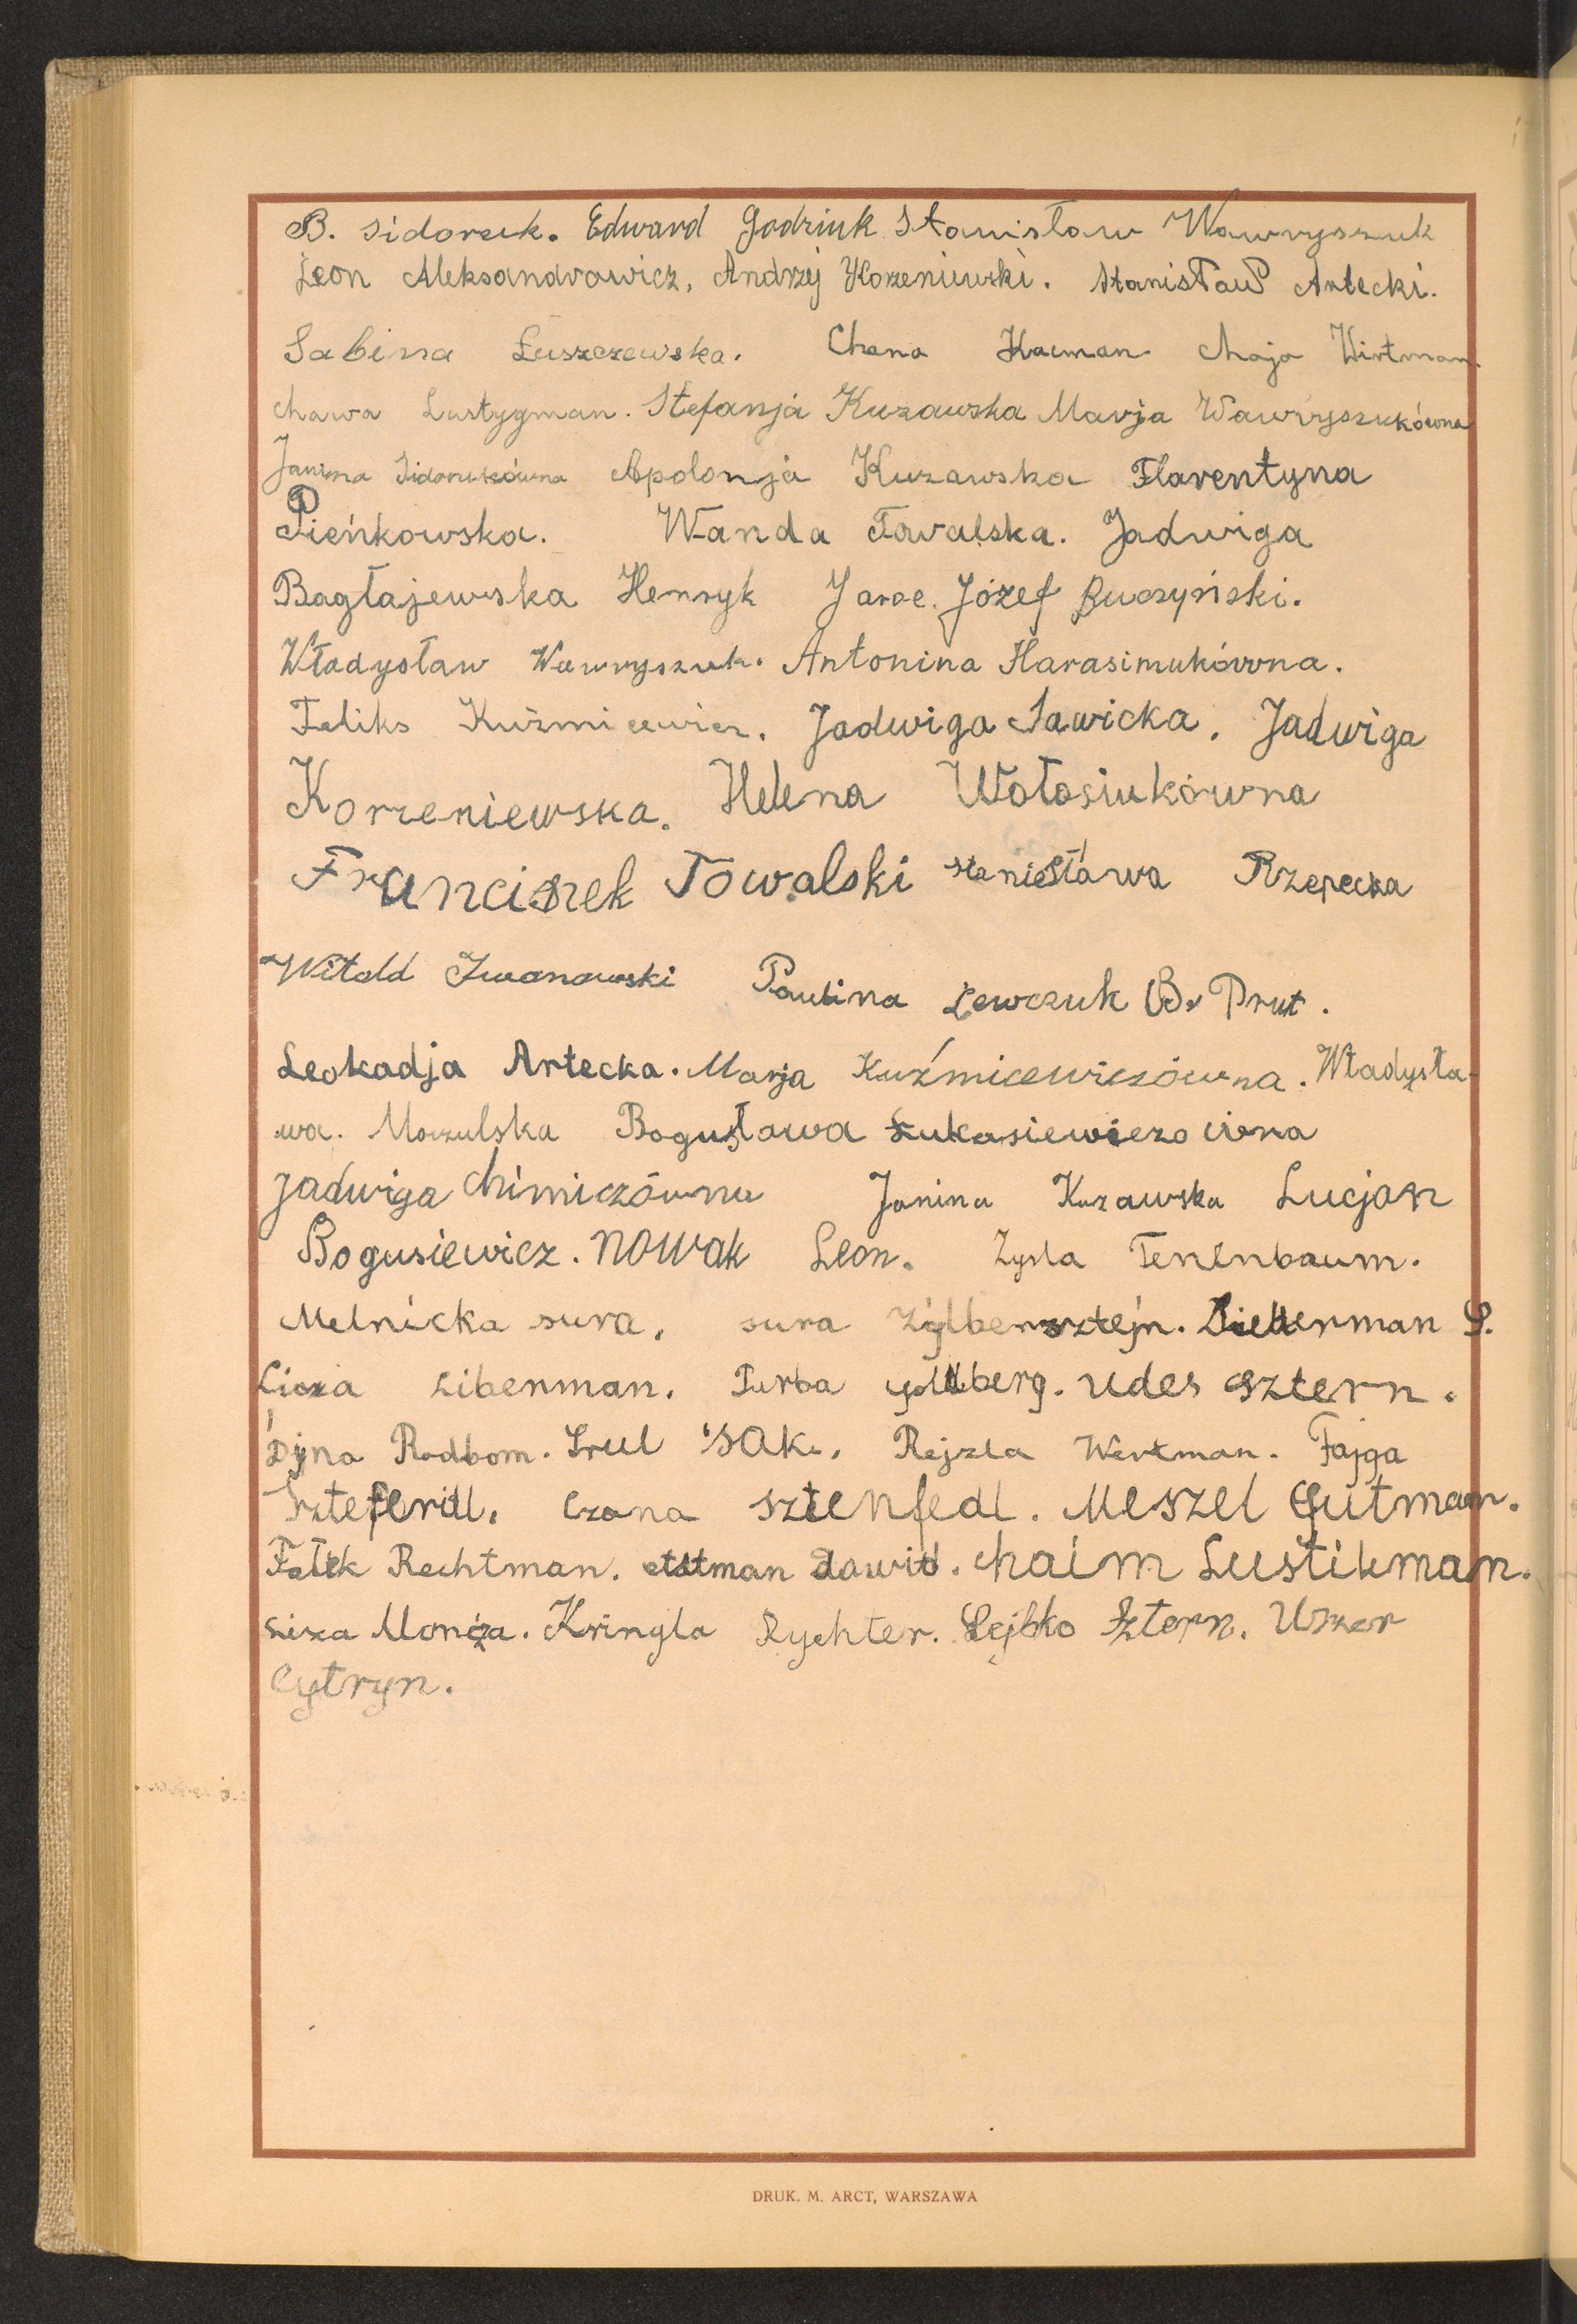 B. Sidoruk. Edward Godziuk Stanisław Wawryszuk
Leon Aleksandrowicz, Andrzej Korzeniewski. Stanisław Artecki.
Sabina Łuszczewska. Chana Kacman Chaja Wirtman
Chawa Lustygman. Stefanja Kurawska Marja Wawryszukówna
Janina Sidorukówna Apolonja Kurawska Florentyna
Pieńkowska. Wanda Towalska. Jadwiga
Bagłajewska Henryk Józef Buczyński.
Władysław Wawryszuk. Antonina Harasimukówna.
Feliks Kuźmicewicz. Jadwiga Sawicka, Jadwiga
Korzeniewska. Helena Wołosiukówna
Franciszek Towalski Stanisława Rzepecka
Witold Iwanowski Paulina Lewczuk B. Prut.
Leokadja Artecka. Marja Kuźmicewiczówna. Władysła-
wa. Bogusława Łukasiewiczówna
Jadwiga Chimiczówna Janina Kurawska Lucjan
Bogusiewicz. Nowak Leon. Zysla Tenenbaum.
Melnicka sura, sura Zylbersztejn. S.
Liberman. goldberg. Udes sztern.
Dyna Rodbom. Srul SAK. Rejzla Wertman. Fajga
sztenfedl. Meszel Gutman.
Rechtman. dawid. Chaim Lustikman.
Kringla Rychter. Lejbko Sztern. Uszer
Cytryn.
DRUK. M. ARCT, WARSZAWA